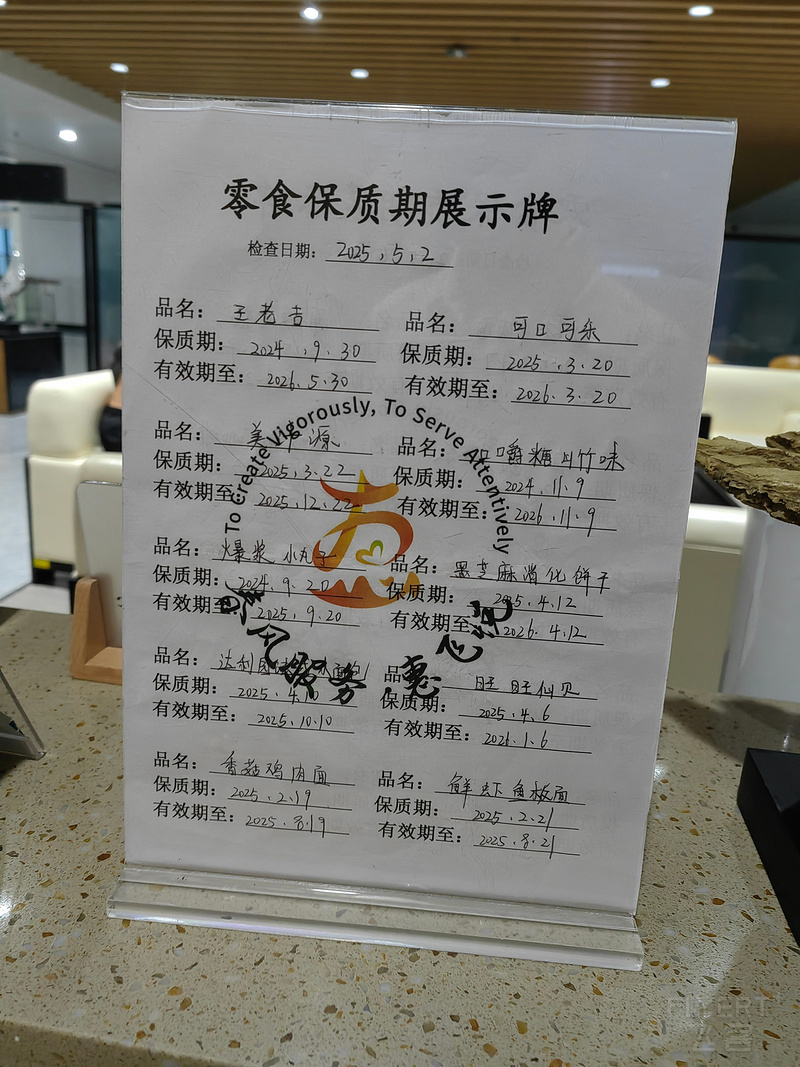 零食保质期展示牌
检查日期: 2025.5.2
品名: 王老吉
保质期: 2024.9.30
有效期至: 2026.5.30
品名: 可口可乐
保质期: 2025.3.20
有效期至: 2026.3.20
品名: 美 源
保质期: 2025.3.22
有效期至: 2025.12.22
品名: 口嚼糖 竹味
保质期: 2024.11.9
有效期至: 2026.11.9
To Create Vigorously, To Serve Attentively
品名: 爆浆小丸子
保质期: 2024.9.20
有效期至: 2025.9.20
品名: 黑芝麻消化饼干
保质期: 2025.4.12
有效期至: 2026.4.12
风服务 惠
品名: 法利 面包
保质期: 2025.4.
有效期至: 2025.10.10
品名: 旺旺仙贝
保质期: 2025.4.6
有效期至: 2026.1.6
品名: 香菇鸡肉面
保质期: 2025.2.19
有效期至: 2025.8.19
品名: 鲜虾鱼板面
保质期: 2025.2.21
有效期至: 2025.8.21
FLYERT